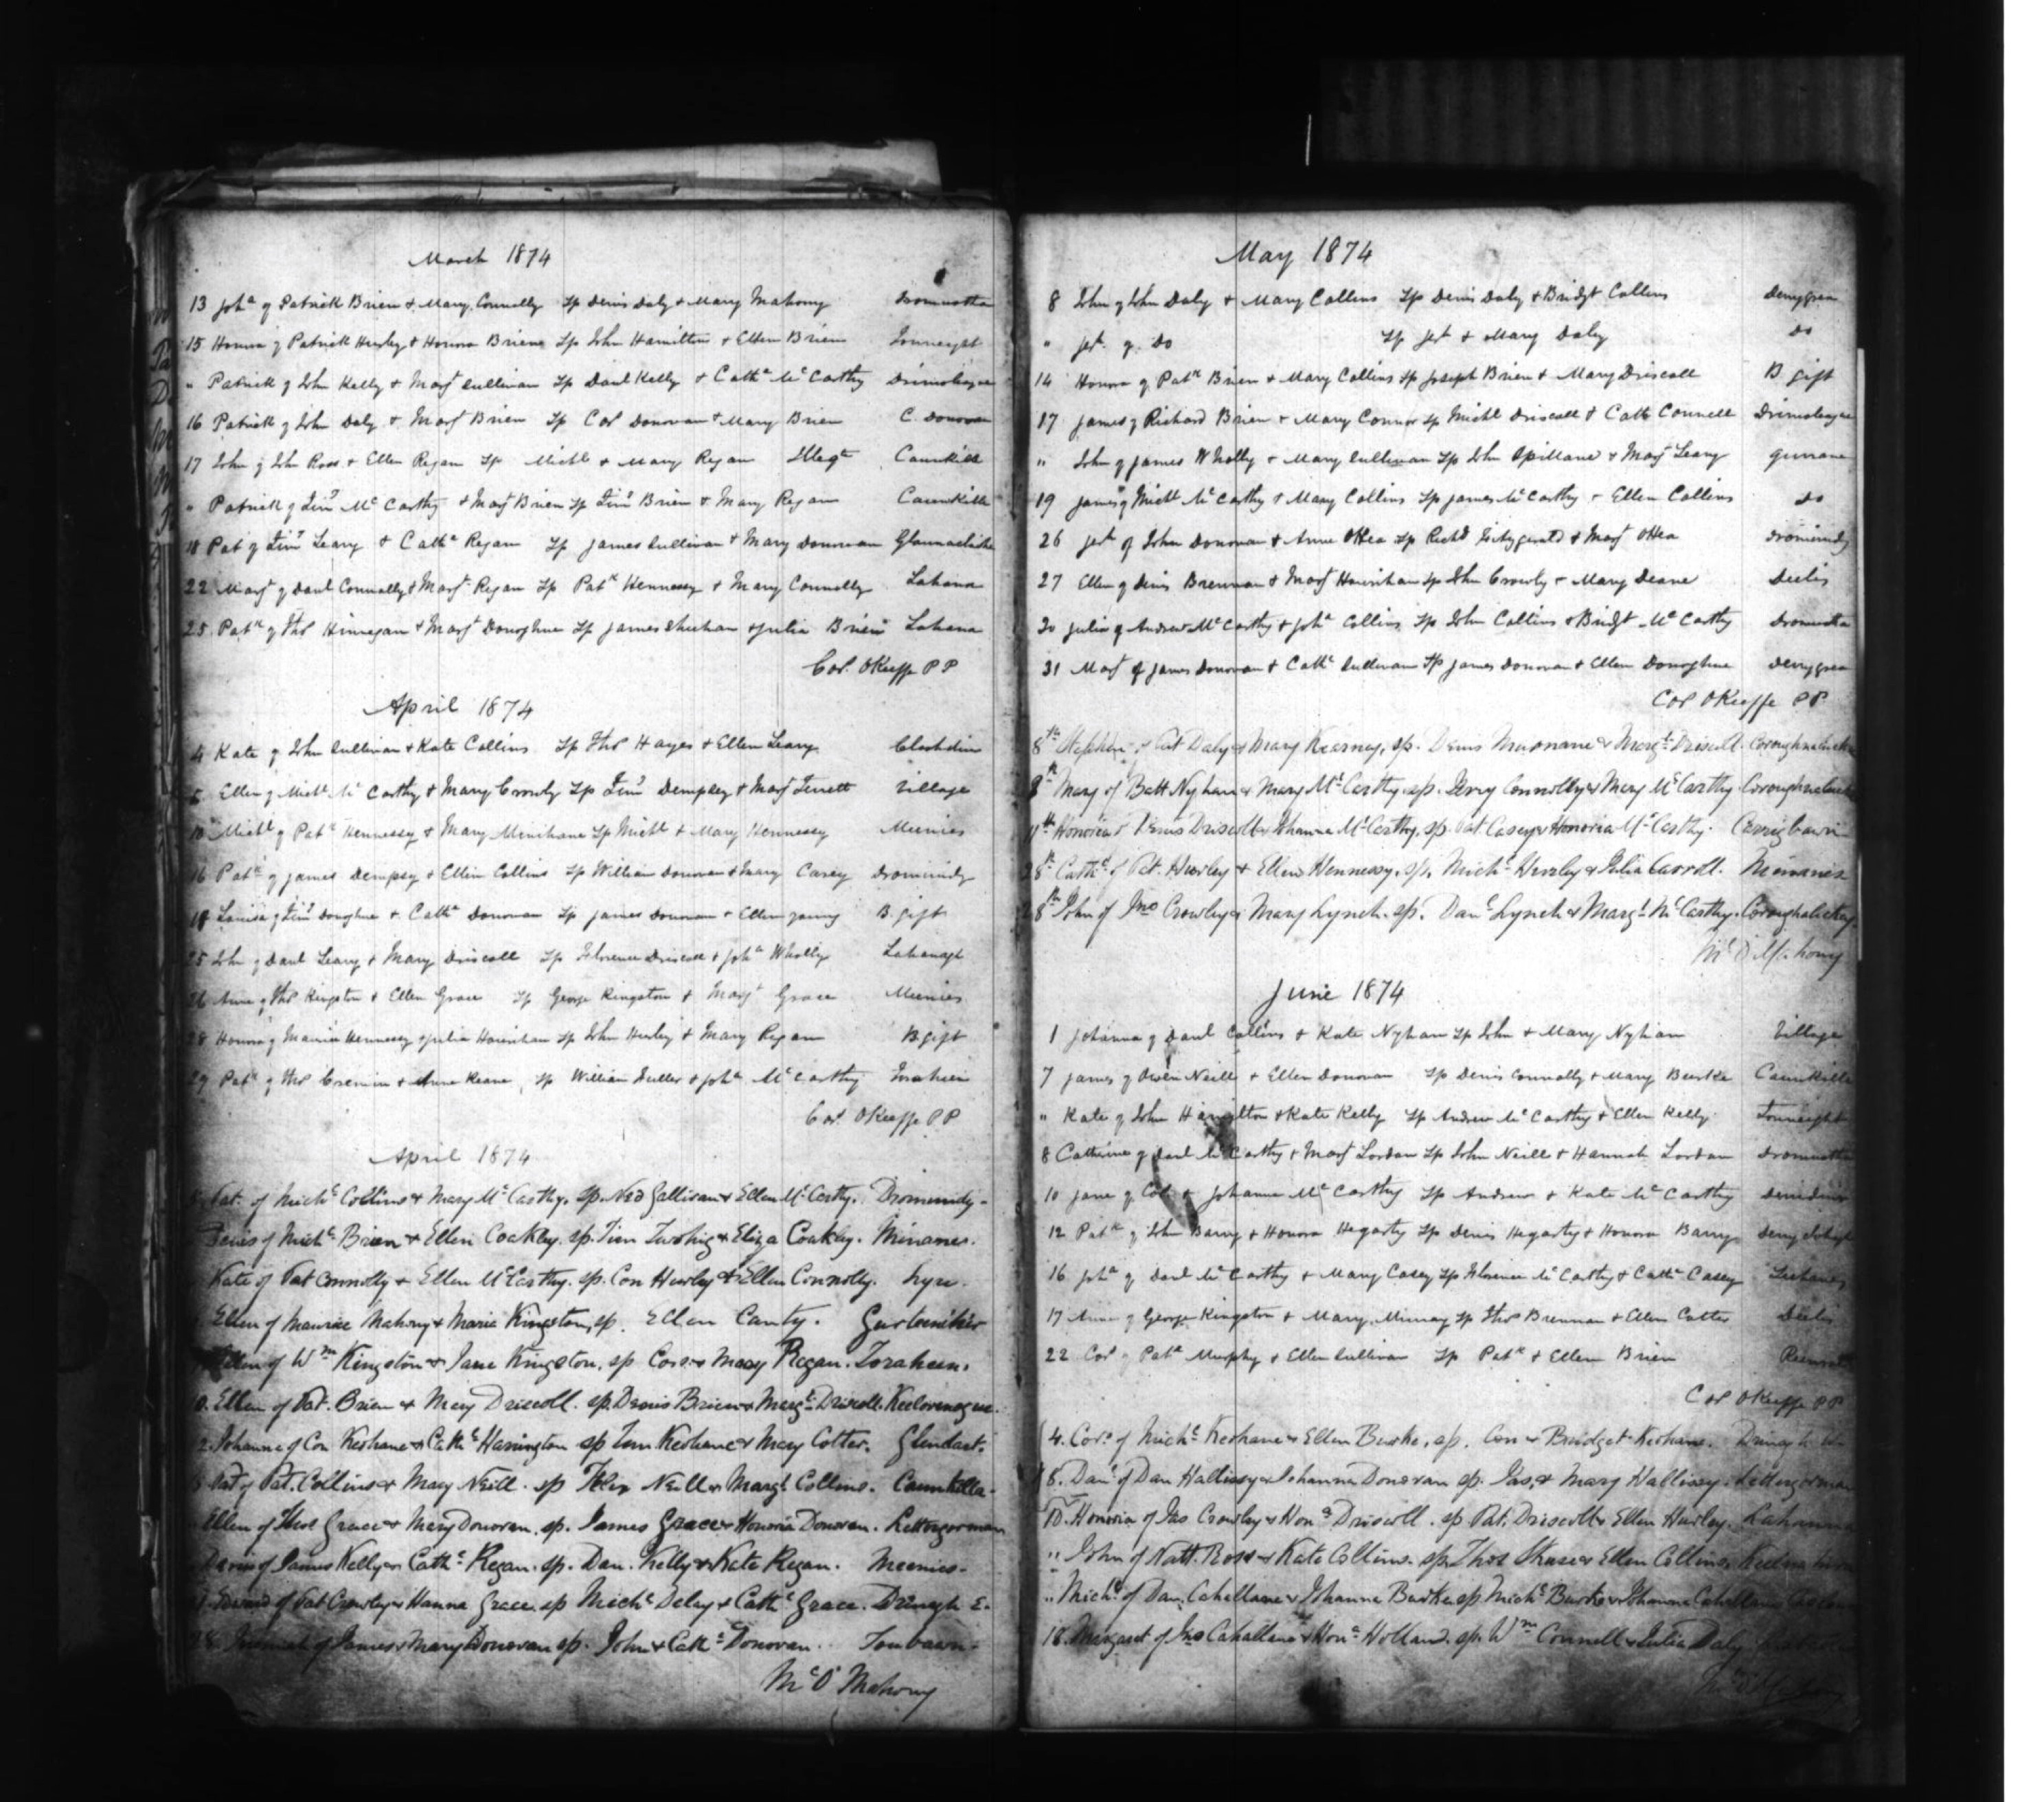 March 1874
13 Joh^a of Patrick Brien & Mary Connolly Sp Denis Daly & Mary Mahony Dromnotta
15 Honora of Patrick Hurley & Honora Brien Sp John Hamilton & Ellen Brien
" Patrick of John Kelly & Marg^t Sullivan Sp Danl Kelly & Cath^e McCarthy Drimoleague
16 Patrick of John Daly & Marg^t Brien Sp Cor Donovan & Mary Brien C. Donovan
17 John of John Ross & Ellen Regan Sp Michl & Mary Regan Illeg^te Caunkilla
" Patrick of Tim^y McCarthy & Marg^t Brien Sp Tim^y Brien & Mary Regan Caunkilla
18 Pat of Tim^y Leary & Cath^e Regan Sp James Sullivan & Mary Donovan
22 Marg^t of Danl Connolly & Marg^t Regan Sp Pat^k Hennessy & Mary Connolly Lahana
25 Pat^k of Tho^s Hinnegan & Marg^t Donoghue Sp James Sheehan & Julia Brien Lahana
Cor. OKeeffe PP
April 1874
4 Kate of John Sullivan & Kate Collins Sp Tho^s Hayes & Ellen Leary Clashduv
5 Ellen of Michl McCarthy & Mary Crowly Sp Tim^y Dempsey & Marg^t Village
10 Michl of Pat^k Hennessy & Mary Minihane Sp Michl & Mary Hennessy Meenies
16 Pat^k of James Dempsy & Ellen Collins Sp William Donovan & Mary Casey Dromindy
19 Louisa of Tim^y Donoghue & Cath^e Donovan Sp James Donovan & Ellen Young B. gift
25 John of Danl Leary & Mary Driscoll Sp Florence Driscoll & Joh^a Wholly Lahanaght
26 Anne of Tho^s Kingston & Ellen Grace Sp George Kingston & Marg^t Grace Meenies
28 Honora of Maurice Hennessy & Julia Hourihan Sp John Hurley & Mary Regan B. gift
29 Pat^k of Tho^s Cremin & Anne Keane Sp William Fuller & Joh^a McCarthy
Cor. OKeeffe PP
April 1874
Pat. of Mich^l Collins & Mary McCarthy. sp. Ned Gallivan & Ellen McCarthy. Dromindy-
Denis of Mich^l Brien & Ellen Coakley. sp. Tim Twohig & Eliza Coakley. Minanes.
Kate of Pat Connolly & Ellen McCarthy. sp. Con Hurley & Ellen Connolly.
Ellen of Maurice Mahony & Maria Kingston, sp. Ellen Canty.
Ellen of W^m Kingston & Jane Kingston, sp Cors & Mary Regan. Toraheen.
10. Ellen of Pat. Brien & Mary Driscoll. sp. Denis Brien & Marg^t Driscoll.
Johanna of Con Keohane & Cath^e Harrington sp Tim Keohane & Mary Cotter.
Pat of Pat. Collins & Mary Neill. sp Neill & Marg^t Collins. Caunkilla-
Ellen of Thos Grace & Mary Donovan. sp. James Grace & Honoria Donovan. Lettergorman
of James Kelly & Cath^e Regan. sp. Dan. Kelly & Kate Regan. Meenies-
of Pat Crowley & Hanna Grace. sp Mich^l Delay & Cath^e Grace. Drinagh E.
28. Jeremiah of James & Mary Donovan sp. John & Cath^e Donovan.
McO'Mahony
May 1874
8 John of John Daly & Mary Collins Sp Denis Daly & Bridgt Collins Derrygrea
" Jer^h of Do Sp Jer^h & Mary Daly Do
14 Honora of Pat^k Brien & Mary Collins Sp Joseph Brien & Mary Driscoll B. gift
17 James of Richard Brien & Mary Connor Sp Michl Driscoll & Cath Connell Drimoleague
" John of James Wholly & Mary Sullivan Sp John Spillane & Marg^t Leary Gurrane
19 James of Michl McCarthy & Mary Collins Sp James McCarthy & Ellen Collins Do
26 Jer^h of John Donovan & Anne OHea Sp Richd Fitzgerald & Marg^t OHea Dromindy
27 Ellen of Denis Brennan & Marg^t Hourihan Sp John Crowly & Mary Deane Deelis
30 Julia of Andrew McCarthy & Joh^a Collins Sp John Collins & Bridgt McCarthy Dromnotta
31 Marg^t of James Donovan & Cath^e Sullivan Sp James Donovan & Ellen Donoghue Derrygrea
Cor OKeeffe PP
8^th Stephen of Pat Daly & Mary Kearney, sp. Denis & Marg^t Driscoll.
8^th Mary of Batt Nyhan & Mary McCarthy, sp. Jerry Connolly & Mary McCarthy.
11^th Honoria of Denis Driscoll & Johanna McCarthy, sp. Pat. Casey & Honoria McCarthy.
28^th Cath^e of Pat. Hurley & Ellen Hennessy, sp. Mich^l Hurley & Julia Carroll.
28^th John of Jno Crowley & Mary Lynch. sp. Dan^l Lynch & Marg^t McCarthy.
McO'Mahony
June 1874
1 Johanna of Danl Collins & Kate Nyhan Sp John & Mary Nyhan Village
7 James of Owen Neill & Ellen Donovan Sp Denis Connolly & Mary Burke Caunkilla
" Kate of John Hamilton & Kate Kelly Sp Andrew McCarthy & Ellen Kelly
8 Catherine of Danl McCarthy & Marg^t Lordan Sp John Neill & Hannah Lordan Dromnotta
10 Jane of Cor & Johanna McCarthy Sp Andrew & Kate McCarthy
12 Pat^k of John Barry & Honora Hegarty Sp Denis Hegarty & Honora Barry
16 Joh^a of Danl McCarthy & Mary Casey Sp Florence McCarthy & Cath^e Casey
17 Anne of George Kingston & Mary Murray Sp Tho^s Brennan & Ellen Cotter Deelis
22 Cor of Pat^k Murphy & Ellen Sullivan Sp Pat^k & Ellen Brien
Cor OKeeffe PP
4. Cor^s of Mich^l Keohane & Ellen Burke, sp. Con & Bridget Keohane. Drinagh W.
8. Dan^l of Dan Hallissy & Johanna Donovan sp. Jas. & Mary Hallissy. Lettergorman
10. Honoria of Jas Crowley & Hon^a Driscoll. sp Pat. Driscoll & Ellen Hurley.
" John of Natt. Ross & Kate Collins. sp. Thos & Ellen Collins.
" Mich^l of Dan. Cahallane & Johanna Burke. sp. Mich^l Burke & Johanna Cahallane
18. Margaret of Jno Cahallane & Hon^a Holland. sp. W^m Connell & Julia Daly